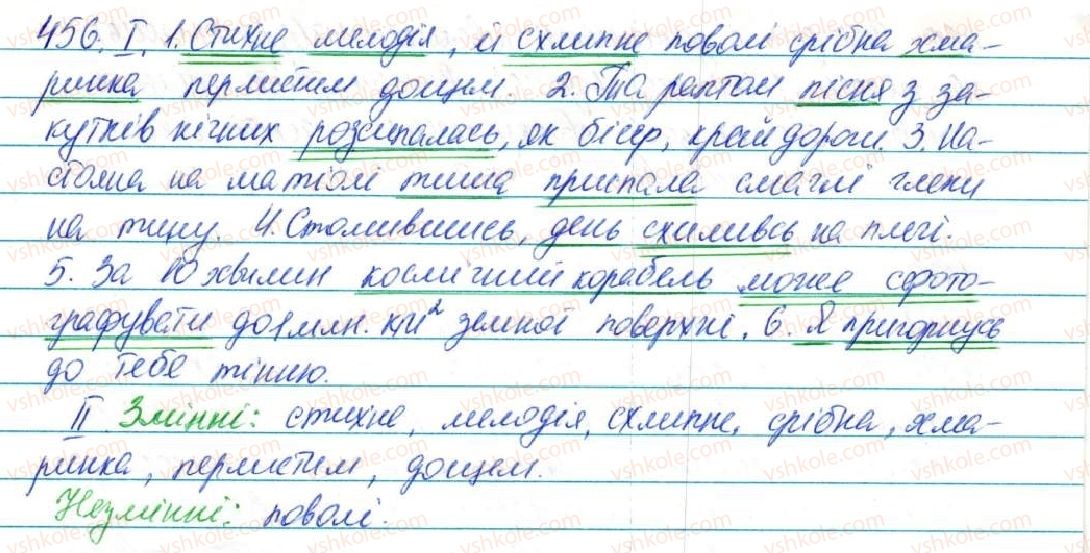 456. I. 1. Стихне мелодія, й схлипне поволі срібна хма-
ринка перлистим дощем. 2. Та раптом пісня з за-
кутків нічних розсипалась, як бісер, край дороги. 3. На-
стояна на матіолі тиша приспала смаглі глеки
на тину. 4. Стомившись, день схиливсь на плечі.
5. За 10 хвилин космічний корабель може сфото-
графувати до 1 млн. км² земної поверхні. 6. Я пригорнусь
до тебе тінню.
II Змінні: стихне, мелодія, схлипне, срібна, хма-
ринка, перлистим, дощем.
Незмінні: поволі.